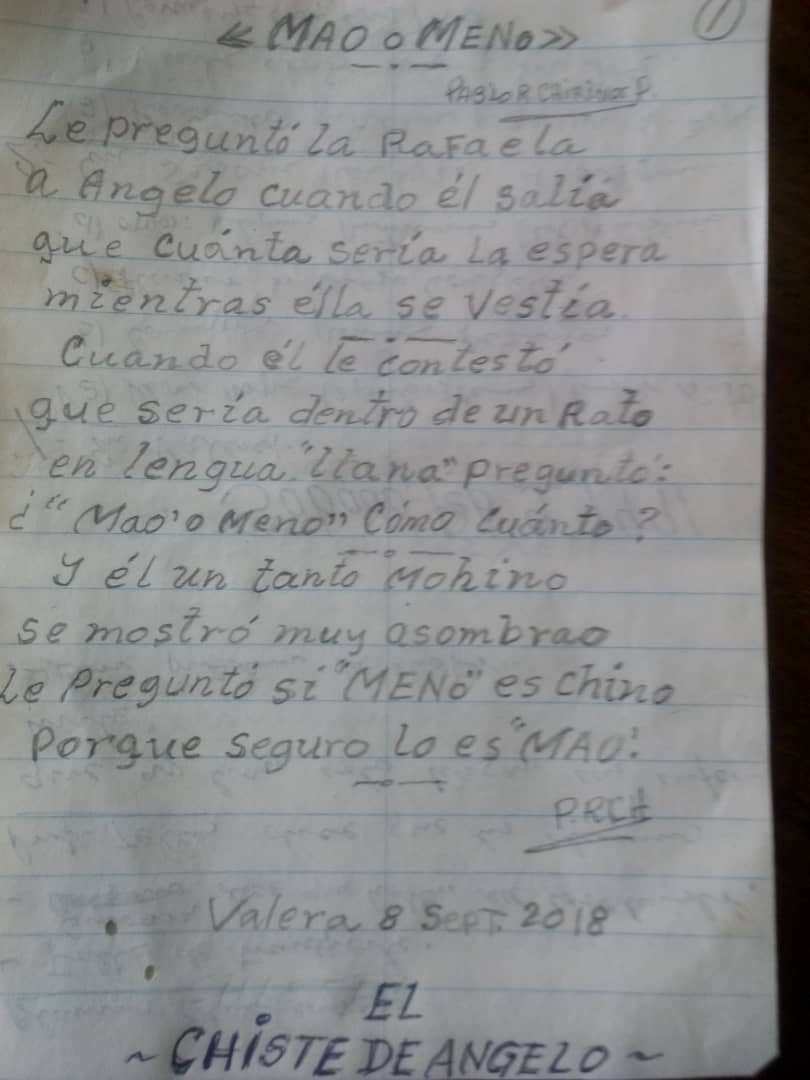 1
« MAO o MENO »
PABLO R CHIRINOS P.
Le preguntó la Rafaela
a Angelo cuando él salía
que cuánta sería la espera
mientras élla se vestía.
Cuando él le contestó
que sería dentro de un Rato
en lengua "llana" preguntó:
¿"Mao' o Meno" Cómo Cuánto?
Y él un tanto Mohino
se mostró muy asombrao
Le Preguntó si "MENO" es chino
Porque seguro lo es "MAO".
P.RCH
Valera 8 SepT. 2018
EL
~ CHISTE DE ANGELO ~